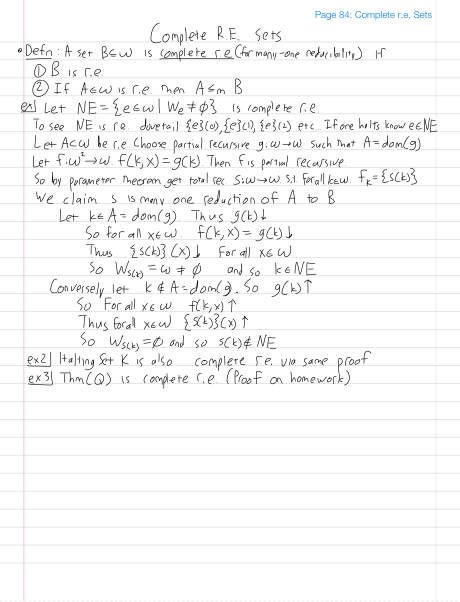 Page 84: Complete r.e. Sets
Complete R.E. Sets
• Defn: A set B⊆ω is complete r.e (for many-one reducibility) if
① B is r.e
② If A⊆ω is r.e. then A ≤m B
ex1 Let NE = {e∈ω | We ≠ ∅} is complete r.e.
To see NE is r.e. dovetail {e}(0), {e}(1), {e}(2) etc. If one halts know e∈NE
Let A⊂ω be r.e. Choose partial recursive g: ω→ω such that A = dom(g)
Let f: ω²→ω. f(k,x) = g(k). Then f is partial recursive.
So by parameter theorem get total rec. S: ω→ω s.t. for all k∈ω. fk = {S(k)}
We claim s is many one reduction of A to B
Let k∈A = dom(g). Thus g(k)↓
So for all x∈ω. f(k,x) = g(k)↓
Thus {s(k)}(x)↓ for all x∈ω
So Ws(k) = ω ≠ ∅ and so k∈NE
Conversely let k ∉ A = dom(g). So g(k)↑
So for all x∈ω f(k,x)↑
Thus for all x∈ω {s(k)}(x)↑
So Ws(k) = ∅ and so s(k)∉NE
ex2 Halting set K is also complete r.e. via same proof
ex3 Thm(Q) is complete r.e. (Proof on homework)